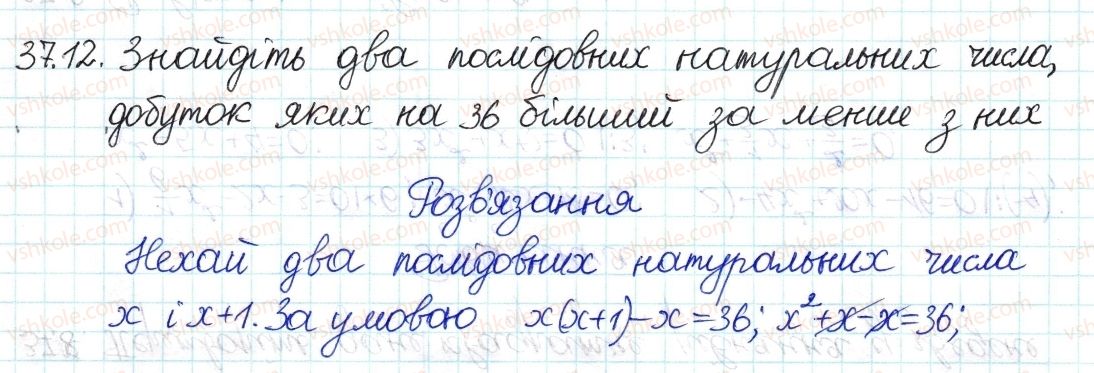 37.12. Знайдіть два послідовних натуральних числа,
добуток яких на 36 більший за менше з них
Розв'язання
Нехай два послідовних натуральних числа
x і x+1. За умовою x(x+1)-x=36; x²+x-x=36;